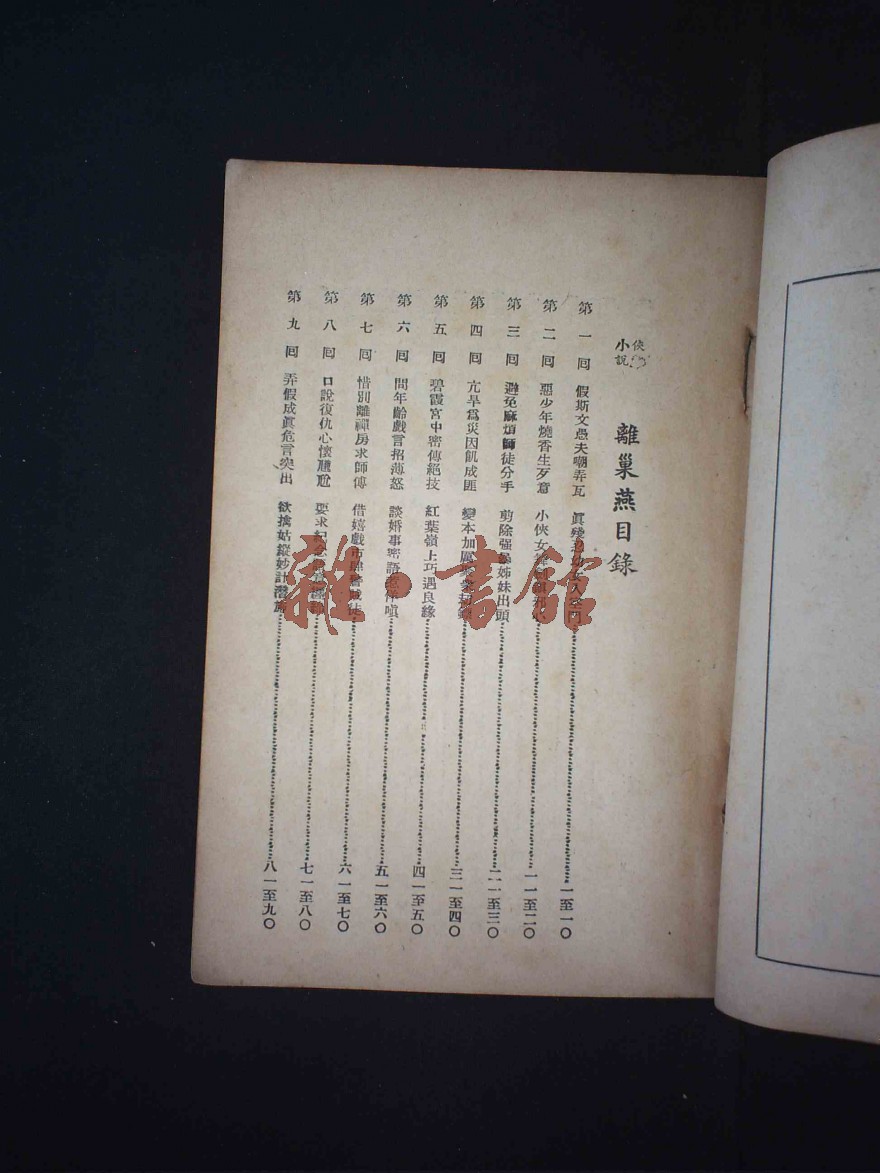 俠
小說
離巢燕目錄
第一囘 假斯文愚夫嘲弄瓦 眞殘忍幼女入空門 一至一〇
第二囘 惡少年燒香生歹意 小俠女 一一至二〇
第三囘 避免麻煩師徒分手 剪除强暴姊妹出頭 二一至三〇
第四囘 亢旱爲災因飢成匪 變本加厲 三一至四〇
第五囘 碧霞宮中密傳絕技 紅葉嶺上巧遇良緣 四一至五〇
第六囘 問年齡戲言招薄怒 談婚事密語惹佯嗔 五一至六〇
第七囘 惜別離禪房求師傅 借嬉戲市 六一至七〇
第八囘 口說復仇心懷尷尬 要求紀念 七一至八〇
第九囘 弄假成眞危言突出 欲擒姑縱妙計潛施 八一至九〇
雜·書館